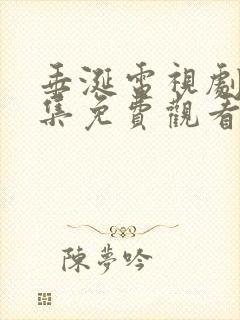 垂涎電視劇
集免費觀看
陳夢吟